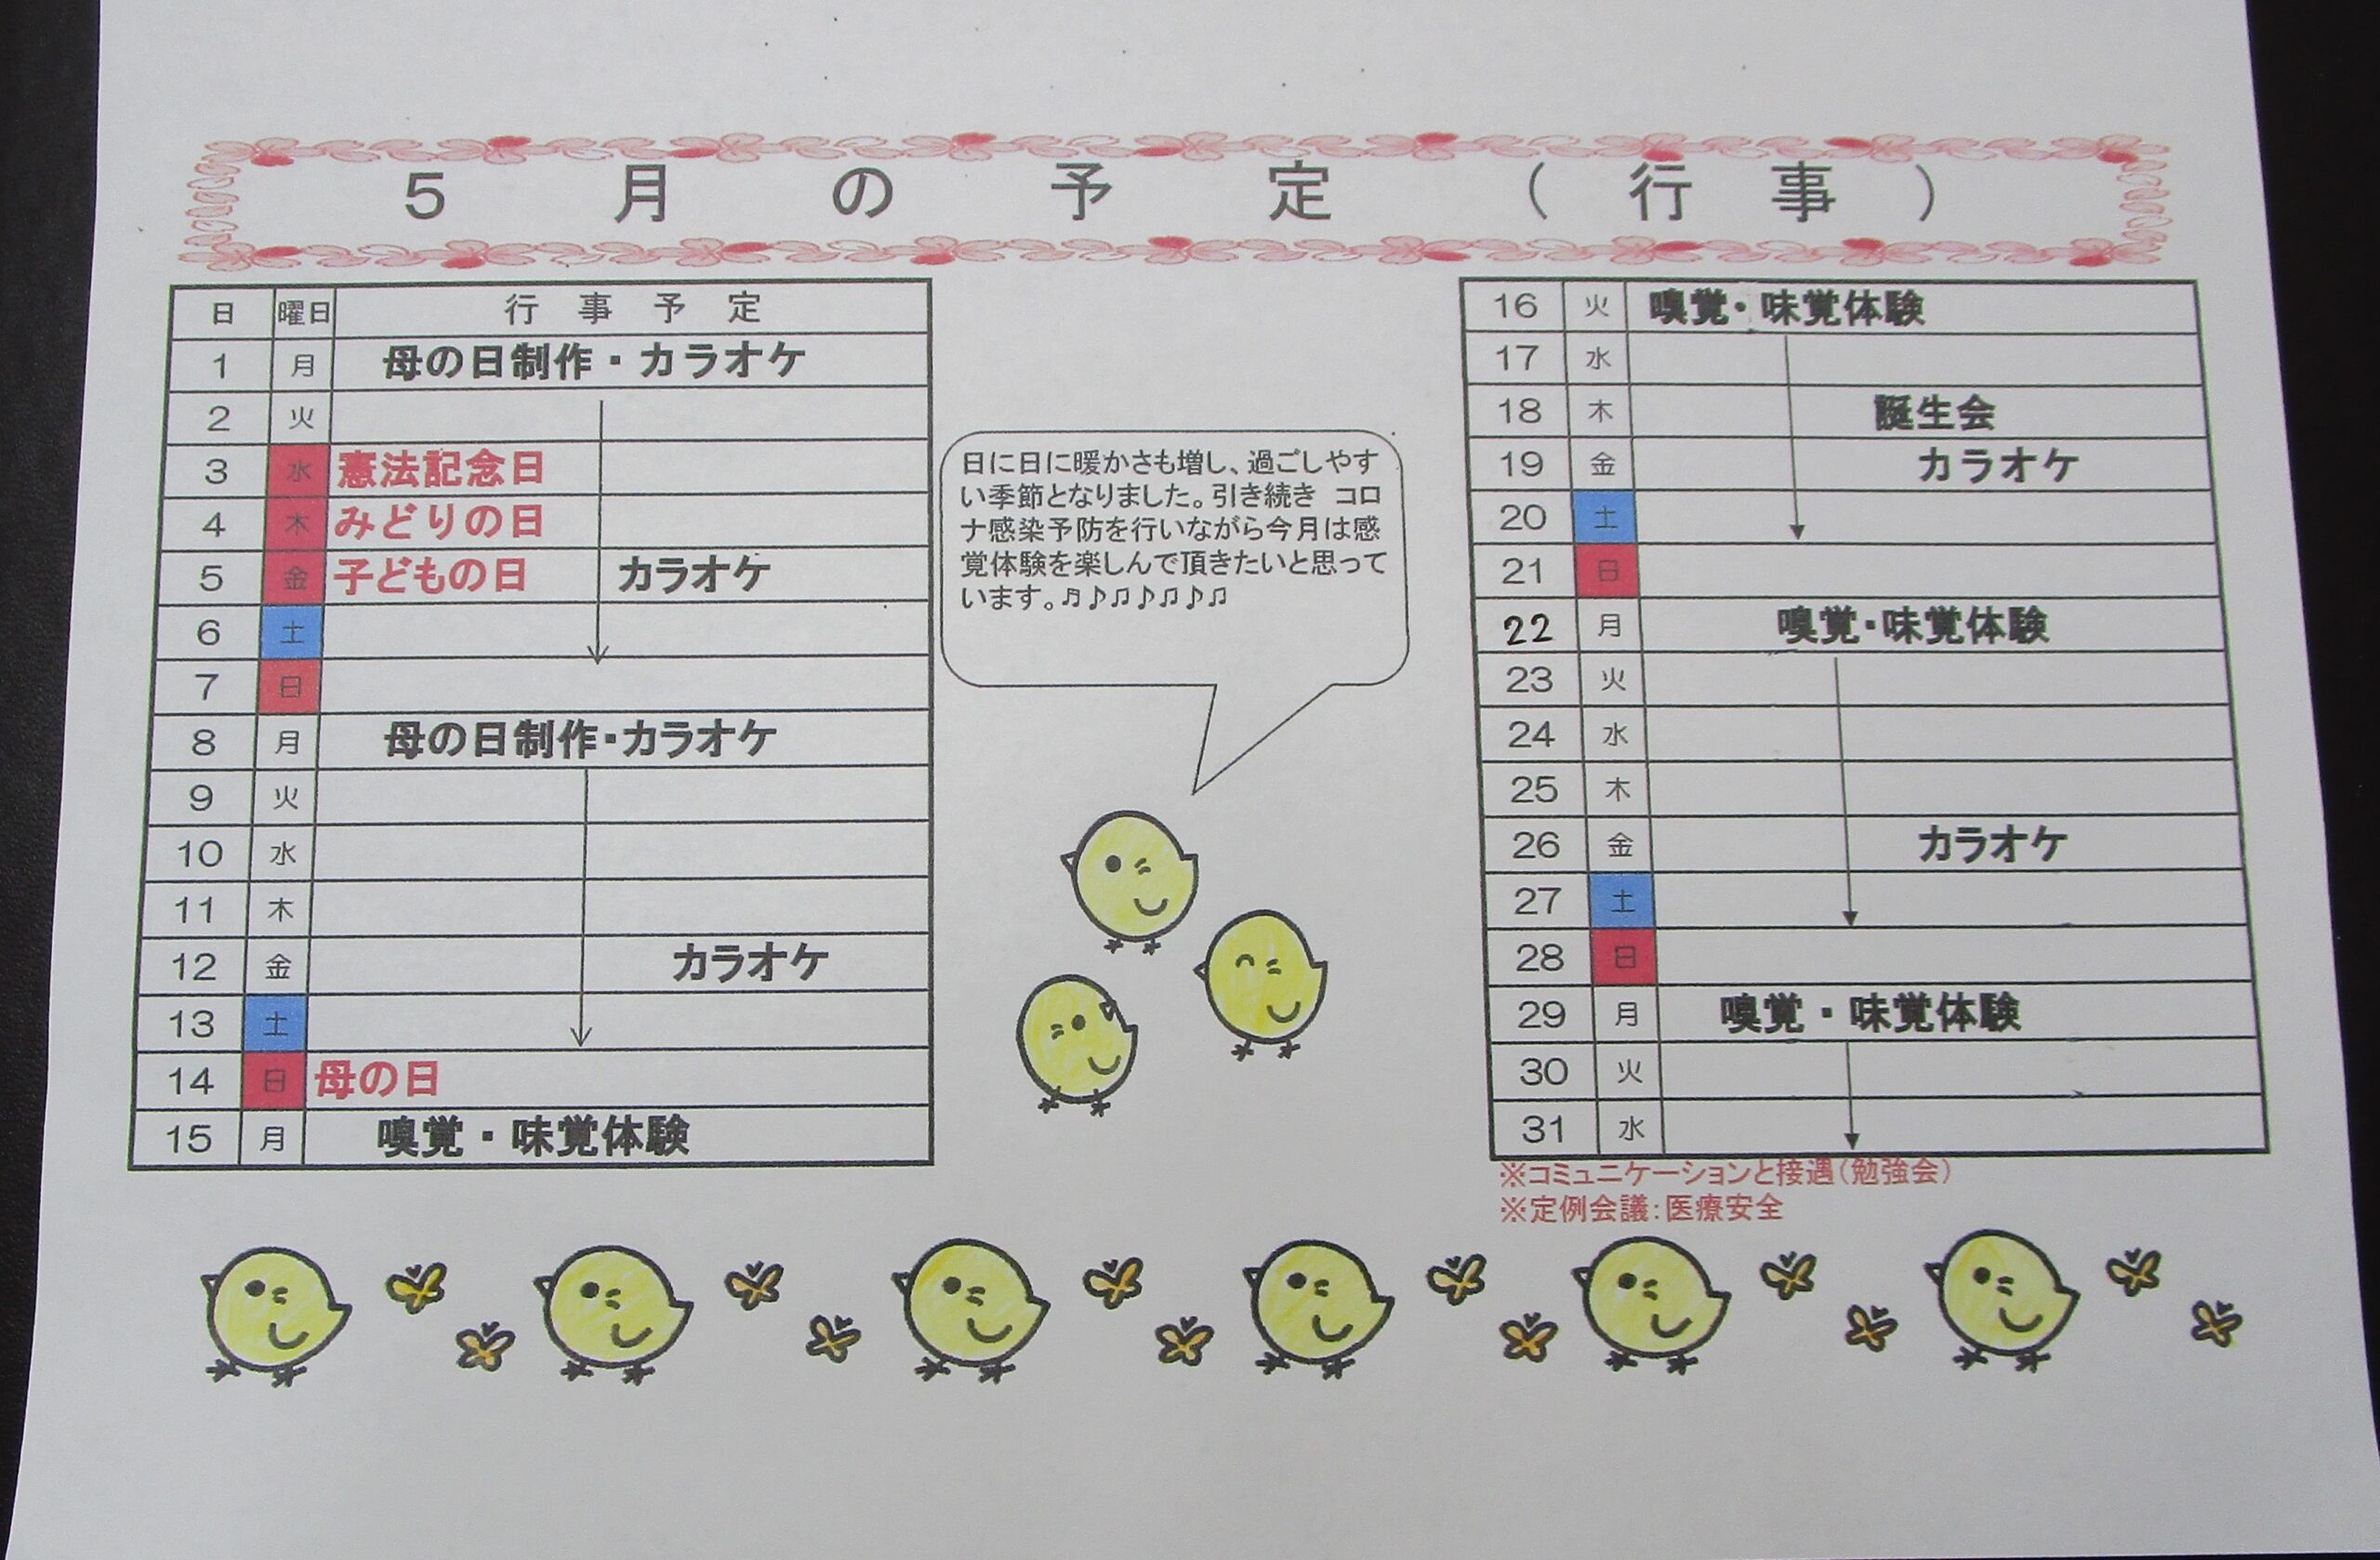 5月の予定（行事）
日 曜日 行事予定
1 月 母の日制作・カラオケ
2 火
3 水 憲法記念日
4 木 みどりの日
5 金 子どもの日 カラオケ
6 土
7 日
8 月 母の日制作・カラオケ
9 火
10 水
11 木
12 金 カラオケ
13 土
14 日 母の日
15 月 嗅覚・味覚体験
日に日に暖かさも増し、過ごしやす
い季節となりました。引き続き コロ
ナ感染予防を行いながら今月は感
覚体験を楽しんで頂きたいと思って
います。♬♪♫♪♫♪♫
16 火 嗅覚・味覚体験
17 水
18 木 誕生会
19 金 カラオケ
20 土
21 日
22 月 嗅覚・味覚体験
23 火
24 水
25 木
26 金 カラオケ
27 土
28 日
29 月 嗅覚・味覚体験
30 火
31 水
※コミュニケーションと接遇（勉強会）
※定例会議：医療安全